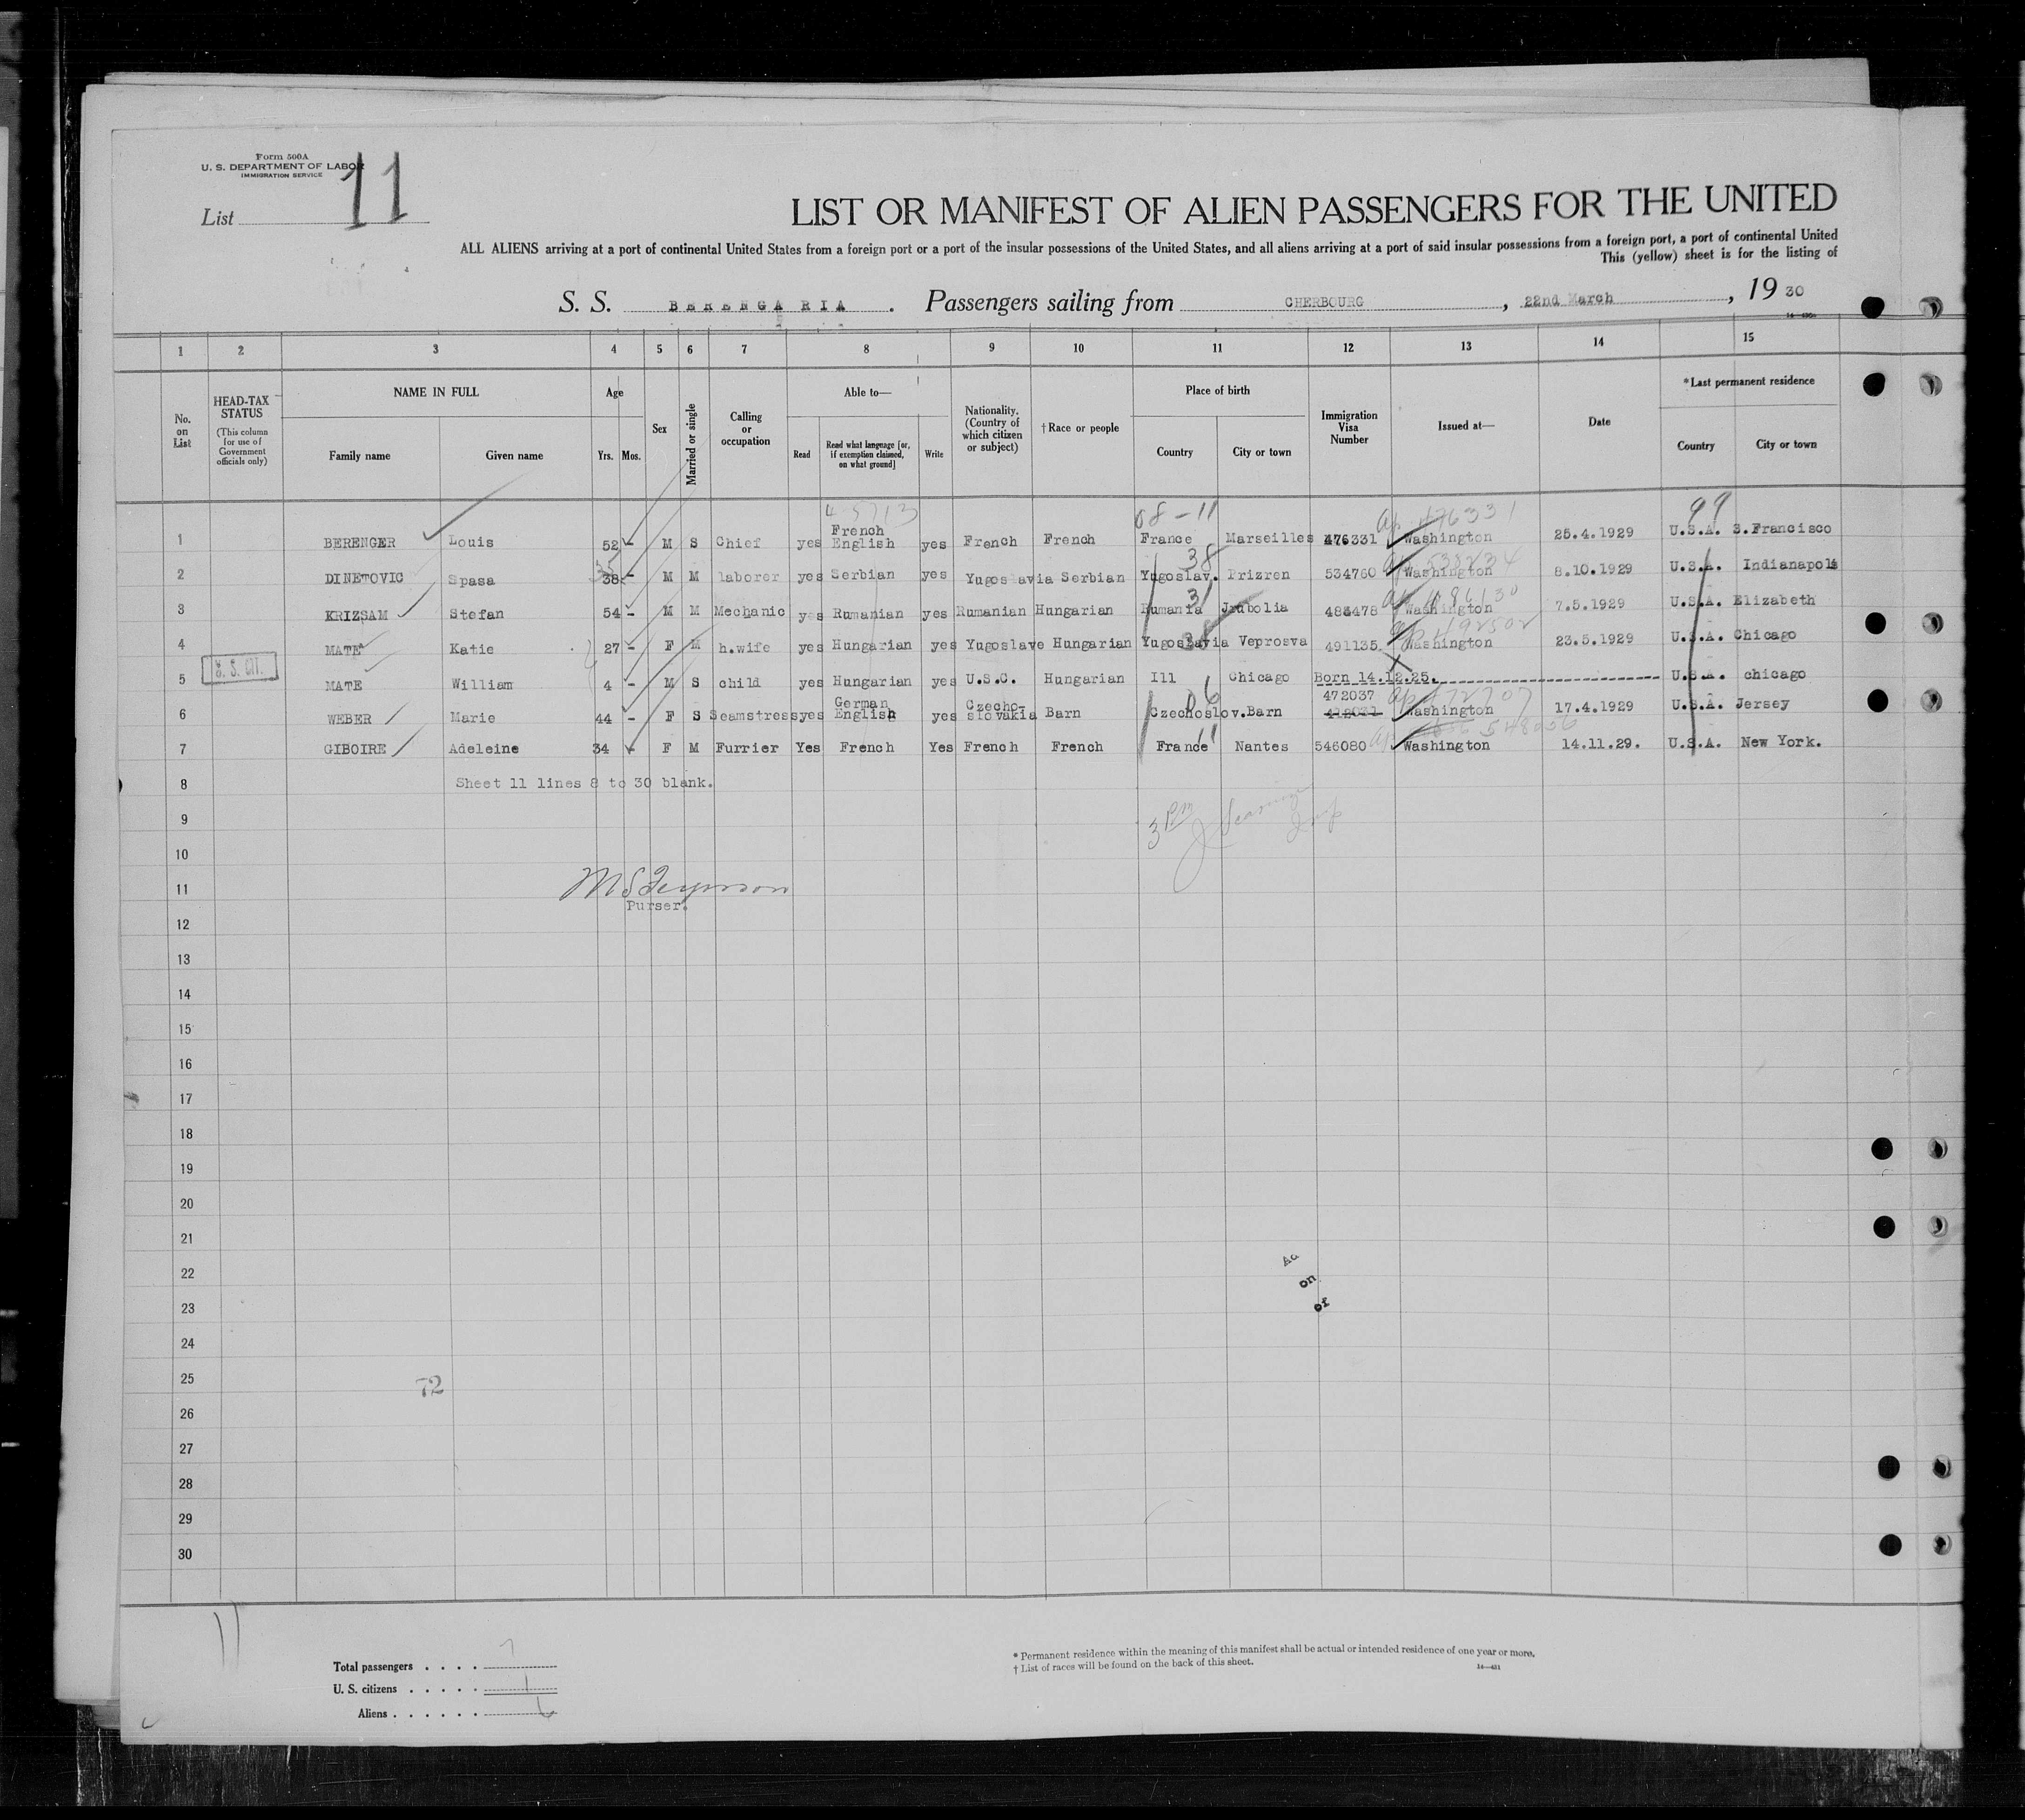 Form 500A
U. S. DEPARTMENT OF LABOR
IMMIGRATION SERVICE
List 11
LIST OR MANIFEST OF ALIEN PASSENGERS FOR THE UNITED
ALL ALIENS arriving at a port of continental United States from a foreign port or a port of the insular possessions of the United States, and all aliens arriving at a port of said insular possessions from a foreign port, a port of continental United
This (yellow) sheet is for the listing of
S. S. BERENGARIA . Passengers sailing from CHERBOURG , 22nd March , 19 30
1 2 3 4 5 6 7 8 9 10 11 12 13 14 15
No. on List
HEAD-TAX STATUS (This column for use of Government officials only)
NAME IN FULL Family name Given name
Age Yrs. Mos.
Sex
Married or single
Calling or occupation
Able to— Read Read what language [or, if exemption claimed, on what ground] Write
Nationality. (Country of which citizen or subject)
†Race or people
Place of birth Country City or town
Immigration Visa Number
Issued at—
Date
*Last permanent residence Country City or town
08-11 99
1 BERENGER Louis 52 - M S Chief yes French English yes French French France Marseilles 476331 Washington 25.4.1929 U.S.A. S.Francisco
2 DINETOVIC Spasa 38 - M M laborer yes Serbian yes Yugoslavia Serbian Yugoslav. Prizren 534760 Washington 8.10.1929 U.S.A. Indianapolis
3 KRIZSAM Stefan 54 - M M Mechanic yes Rumanian yes Rumanian Hungarian Rumania Jmbolia 484478 Washington 7.5.1929 U.S.A. Elizabeth
4 MATE Katie 27 - F M h.wife yes Hungarian yes Yugoslave Hungarian Yugoslavia Veprosva 491135 Washington 23.5.1929 U.S.A. Chicago
U. S. CIT.
5 MATE William 4 - M S child yes Hungarian yes U.S.C. Hungarian Ill Chicago Born 14.12.25. U.S.A. chicago
6 WEBER Marie 44 - F S Seamstress yes German English yes Czecho-slovakia Barn Czechoslov. Barn 472037 Washington 17.4.1929 U.S.A. Jersey
7 GIBOIRE Adeleine 34 - F M Furrier Yes French Yes French French France Nantes 546080 Washington 14.11.29. U.S.A. New York.
8 Sheet 11 lines 8 to 30 blank.
9
10
11
Purser.
12
13
14
15
16
17
18
19
20
21
22
on
23
of
24
25
72
26
27
28
29
30
11
Total passengers . . . . 7
U. S. citizens . . . . . 1
Aliens . . . . . . 6
* Permanent residence within the meaning of this manifest shall be actual or intended residence of one year or more.
† List of races will be found on the back of this sheet.
14—421